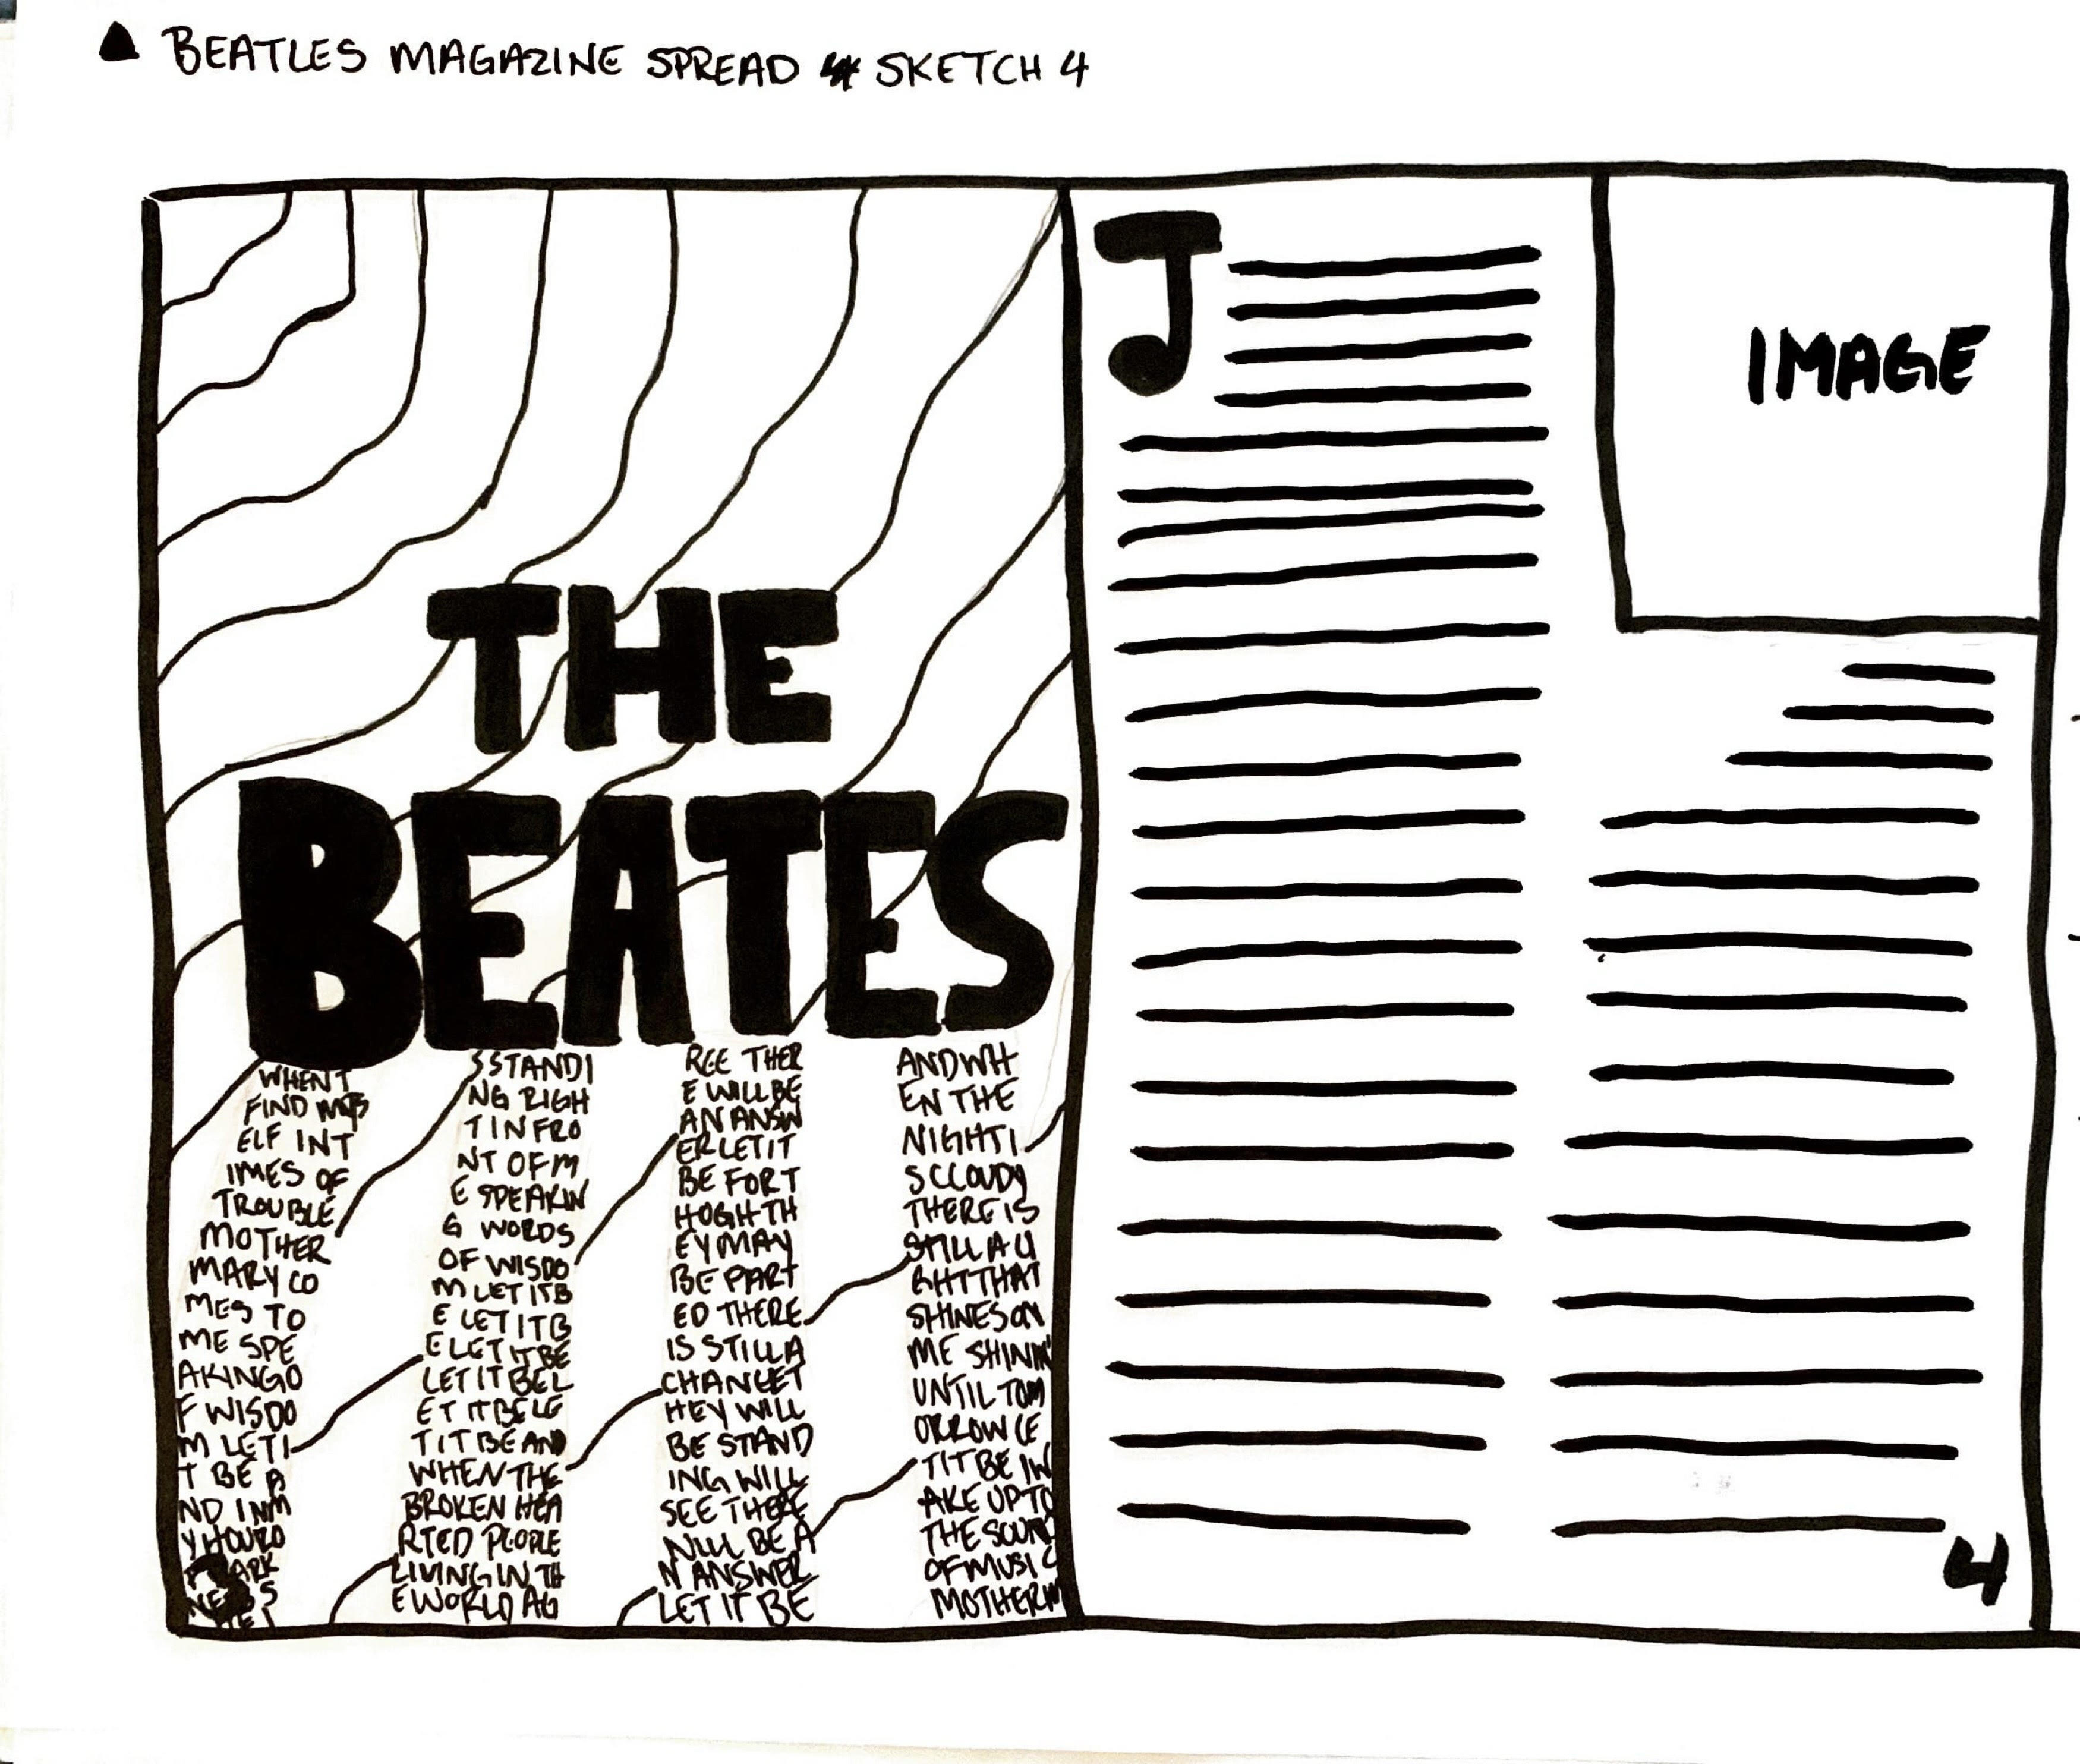 BEATLES MAGAZINE SPREAD SKETCH 4
THE
BEATES
WHEN I
FIND MYS
ELF IN T
IMES OF
TROUBLE
MOTHER
MARY CO
MES TO
ME SPE
AKING O
F WISDO
M LET I
T BE A
ND IN M
Y HOUR O
ARK
NESS
S STANDI
NG RIGH
T IN FRO
NT OF M
E SPEAKIN
G WORDS
OF WISDO
M LET IT B
E LET IT B
E LET IT BE
LET IT BE L
ET IT BE LE
T IT BE AND
WHEN THE
BROKEN HEA
RTED PEOPLE
LIVING IN TH
E WORLD AG
REE THER
E WILL BE
AN ANSW
ER LET IT
BE FOR T
HOGH TH
EY MAY
BE PART
ED THERE
IS STILL A
CHANCE T
HEY WILL
BE STAND
ING WILL
SEE THERE
WILL BE A
N ANSWER
LET IT BE
AND WH
EN THE
NIGHT I
S CLOUDY
THERE IS
STILL A LI
GHT THAT
SHINES ON
ME SHININ
UNTIL TOM
ORROW LE
T IT BE I W
AKE UP TO
THE SOUND
OF MUSIC
MOTHER M
J
IMAGE
4